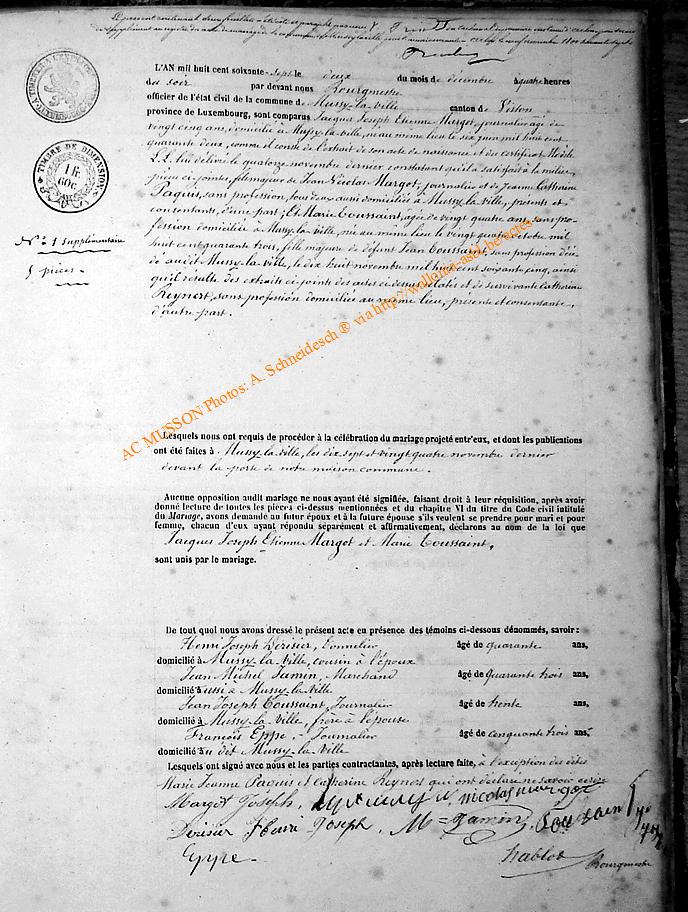 Le présent contenant deux feuillets a été coté et paraphé par nous
L'AN mil huit cent soixante-sept le deux du mois de décembre à quatre heures
du soir par devant nous Bourgmestre
officier de l'état civil de la commune de Mussy-la-ville canton de Virton
province de Luxembourg, sont comparus Jacques Joseph Etienne Margot, journalier âgé de
vingt cinq ans, domicilié à Mussy-la-ville, né au même lieu le six juin mil huit cent
quarante deux, comme il conste de l'extrait de son acte de naissance et du certificat Modèle
L.L. lui délivré le quatorze novembre dernier constatant qu'il a satisfait à la milice,
pièces ci-jointes, fils majeur de Jean Nicolas Margot, journalier et de Jeanne Catherine
Paquis, sans profession, tous deux aussi domiciliés à Mussy-la-ville, présents et
consentants, d'une part; Et Marie Toussaint, âgée de vingt quatre ans, sans pro-
fession domiciliée à Mussy-la-ville, née au même lieu le vingt quatre octobre mil
huit cent quarante trois, fille majeure de défunt Jean Toussaint, sans profession décé-
dé audit Mussy-la-ville, le dix huit novembre mil huit cent soixante cinq, ainsi
qu'il résulte des extraits ci-joints des actes ci-dessus relatés et de survivante Catherine
Reynert, sans profession domiciliée au même lieu, présente et consentante,
d'autre part.
TIMBRE DE DIMENSION
1 fr.
60 c.
N° 1 supplémentaire
5 pièces
AC MUSSON Photos: A. Schneidesch ® via http://wallonia-asbl.be/actes
Lesquels nous ont requis de procéder à la célébration du mariage projeté entr'eux, et dont les publications
ont été faites à Mussy-la-ville, les dix sept et vingt quatre novembre dernier
devant la porte de notre maison commune.
Aucune opposition audit mariage ne nous ayant été signifiée, faisant droit à leur réquisition, après avoir
donné lecture de toutes les pièces ci-dessus mentionnées et du chapitre VI du titre du Code civil intitulé
du Mariage, avons demandé au futur époux et à la future épouse s'ils veulent se prendre pour mari et pour
femme, chacun d'eux ayant répondu séparément et affirmativement, déclarons au nom de la loi que
Jacques Joseph Etienne Margot et Marie Toussaint,
sont unis par le mariage.
De tout quoi nous avons dressé le présent acte en présence des témoins ci-dessous dénommés, savoir:
Henri Joseph Derisier, Tonnelier âgé de quarante ans,
domicilié à Mussy-la-Ville, cousin à l'époux
Jean Michel Jamin, Marchand âgé de quarante trois ans,
domicilié aussi à Mussy-la-Ville
Jean Joseph Toussaint, Journalier âgé de trente ans,
domicilié à Mussy-la-Ville, frère à l'épouse
François Eppe, Journalier âgé de cenquante trois ans,
domicilié au dit Mussy-la-Ville
Lesquels ont signé avec nous et les parties contractantes, après lecture faite, à l'exception des dites
Marie Jeanne Paquis et Catherine Reynert qui ont déclaré ne savoir écrire
Margot Joseph, nicolas margot
Derisier Henri Joseph, M Jamin
Eppe Bourgmestre